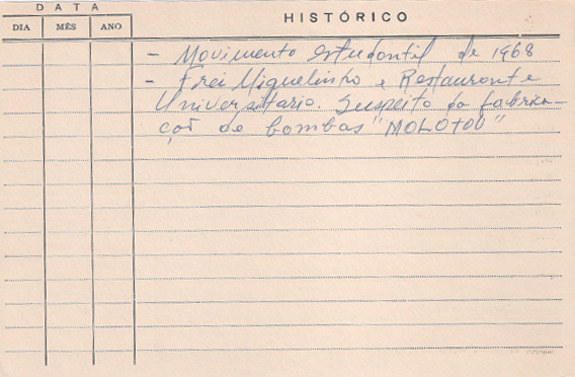 DATA
HISTÓRICO
DIA MÊS ANO
- Movimento estudantil de 1968
- Frei Miguelinho e Restaurante
Universitário. Suspeito da fabrica-
ção de bombas "MOLOTOV"